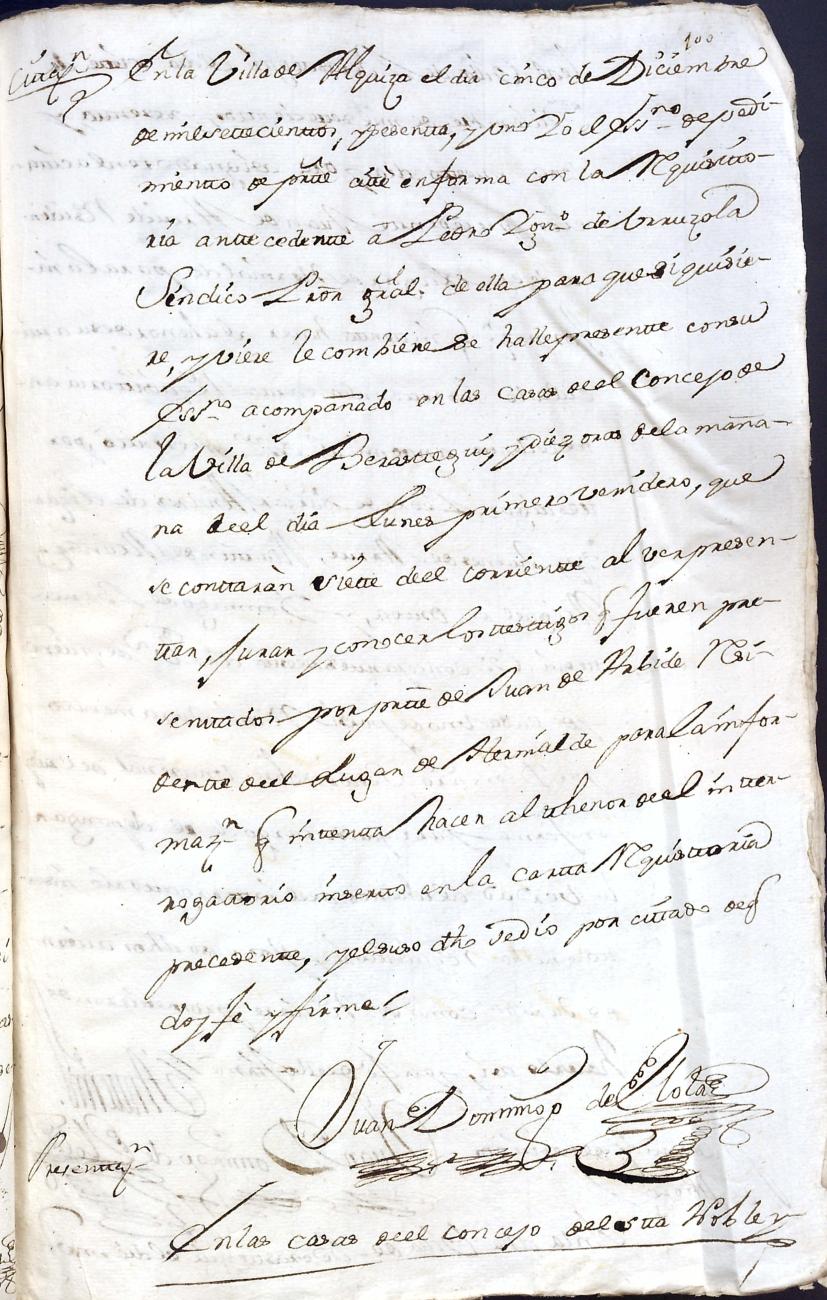 100
Citaz.n
En la Villa de Alquiza el dia cinco de Diciembre
de mil settecientos, y sesenta, y uno Yo el Ess.no de pedi-
mientto de partte citte en forma con la Requisitto-
ria anttecedentte â Pedro Ygn.º de Urruzola
Sindico Prôn gral. de ella para que si quisie-
re, y viere le combiene se halle presentte con su
Ess.no acompañado en las casas de el Concejo de
la Villa de Berasttegui, y diez oras de la maña-
na de el dia Lunes primero venidero, que
se conttaràn siette de el corrientte al ver presen-
ttar, Jurar y conocer los testtigos q fueren pre-
senttados por partte de Juan de Arbide Resi-
dentte de el Lugar de Hernialde para la infor-
maz.n q inttentta hacer al thenor de el intter-
rogattorio insertto en la cartta Requisttoria
precedentte, y el suso dho se dio por cittado de q
doy fè y firme
Juan Domingo de Elola
Presenttaz.n
En las casas de el concejo de estta Noble y